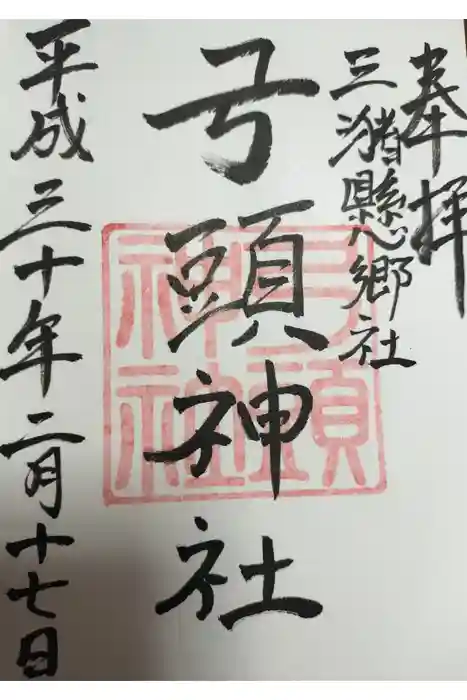 奉拝
三潴縣郷社
弓頭神社
平成三十年二月十七日
弓頭
神社